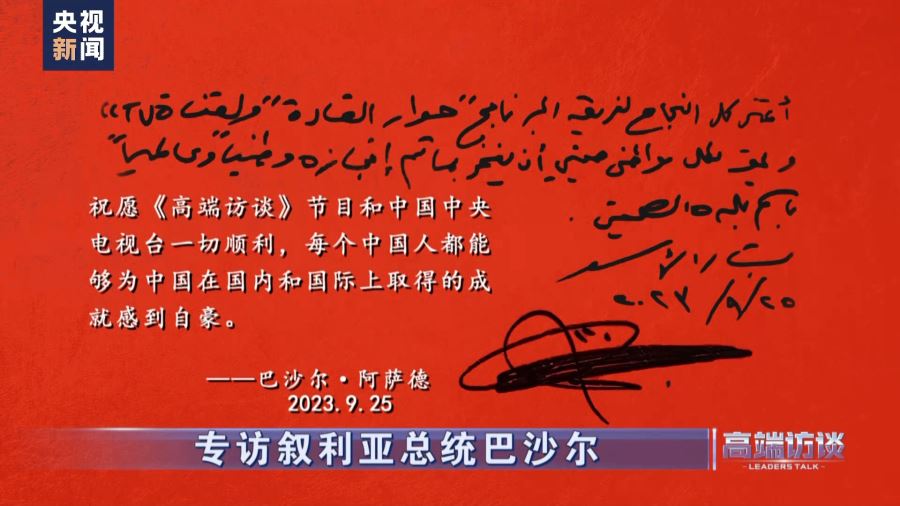 央视
新闻
أتمنى كل النجاح لفريق البرنامج "حوار القادة" ولقناة CCTV
ويحق لكل مواطن صيني أن يفخر بما تم إنجازه وطنياً وعالمياً
باسم بلده الصين.
بشار الأسد
٢٠٢٣/٩/٢٥
祝愿《高端访谈》节目和中国中央
电视台一切顺利，每个中国人都能
够为中国在国内和国际上取得的成
就感到自豪。
——巴沙尔·阿萨德
2023.9.25
专访叙利亚总统巴沙尔
高端访谈
LEADERS TALK